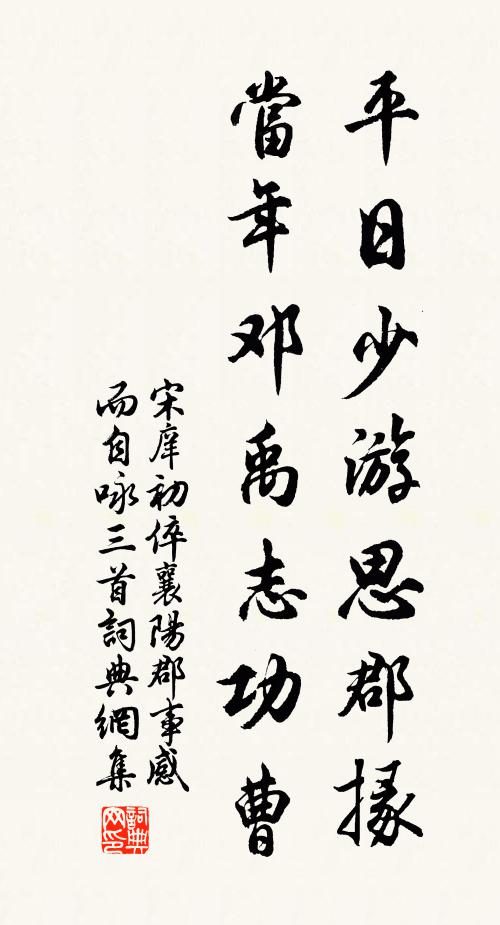 平日少游思郡掾
當年邓禹志功曹
宋庠初倅襄陽郡事感
而自咏三首詞典網集
詞典网印